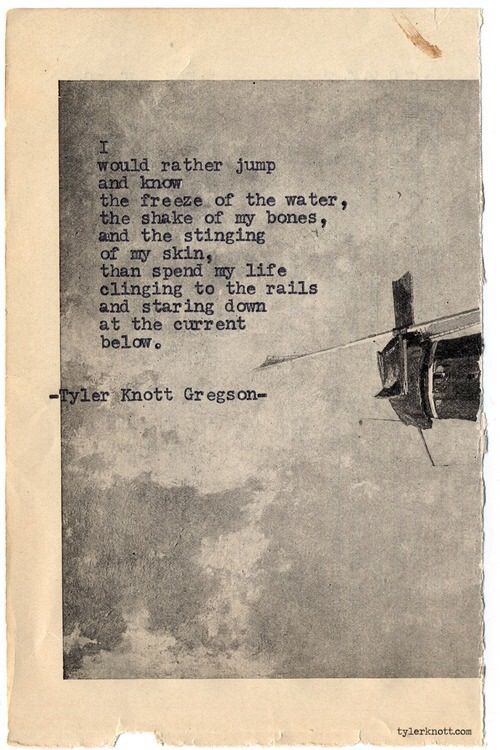 I
would rather jump
and know
the freeze of the water,
the shake of my bones,
and the stinging
of my skin,
than spend my life
clinging to the rails
and staring down
at the current
below.
-Tyler Knott Gregson-
tylerknott.com